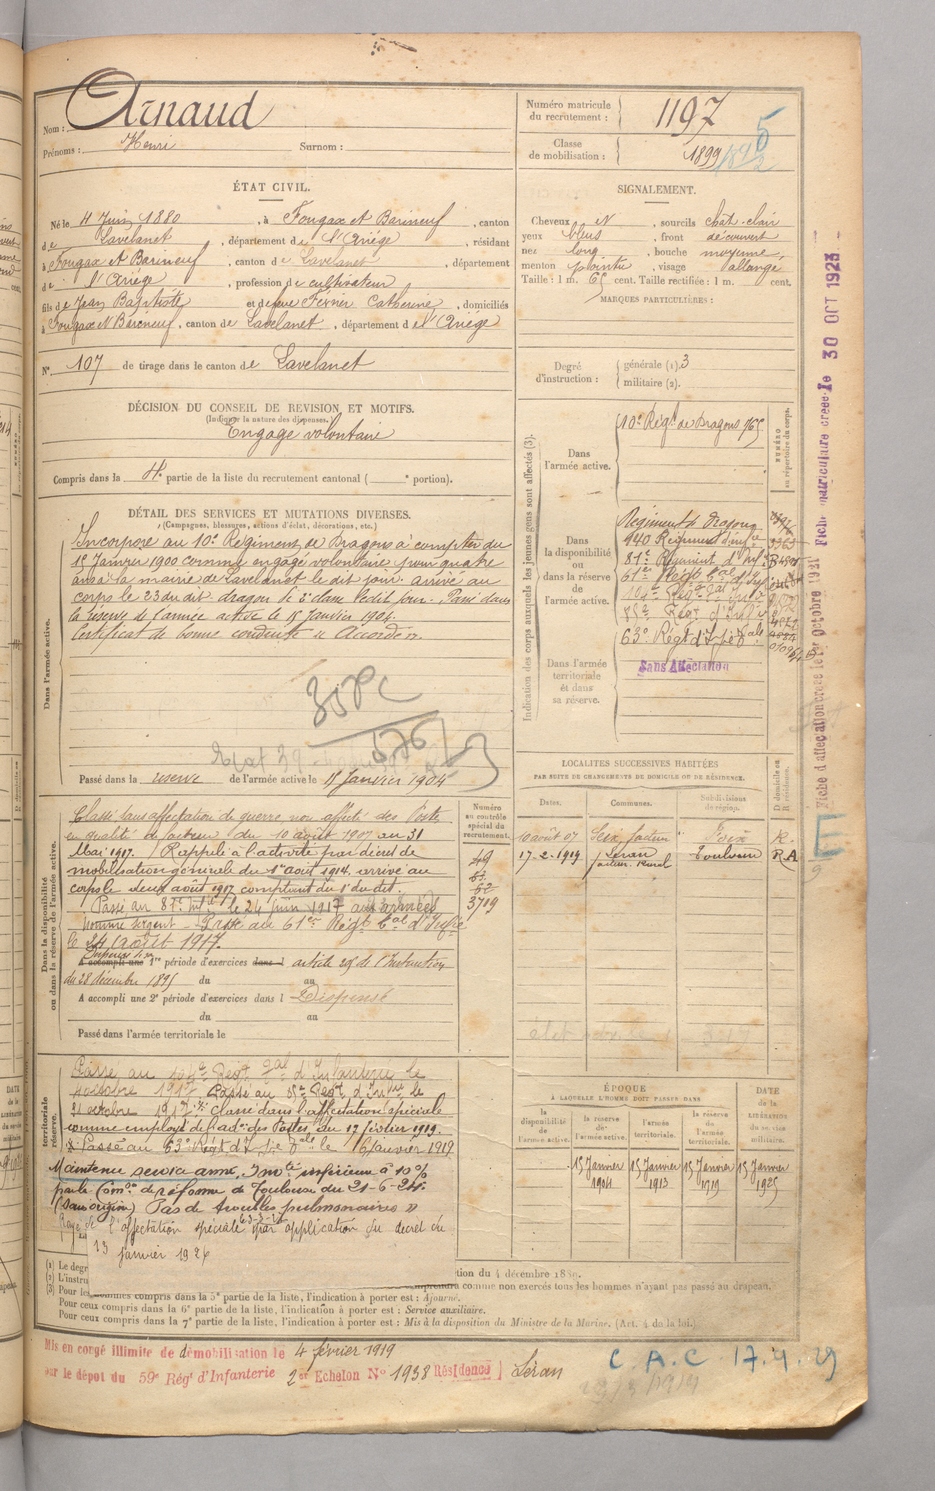 Nom : Arnaud
Prénoms : Henri Surnom :
Numéro matricule du recrutement : 1197
Classe de mobilisation : 1899
ÉTAT CIVIL.
Né le 4 Juin 1880, à Fougax et Barineuf, canton
de Lavelanet, département de l'Ariège, résidant
à Fougax et Barineuf, canton de Lavelanet, département
de l'Ariège, profession de cultivateur
fils de Jean Baptiste et de feue Ferrier Catherine, domiciliés
à Fougax et Barineuf, canton de Lavelanet, département de l'Ariège
N° 107 de tirage dans le canton de Lavelanet
SIGNALEMENT.
Cheveux N, sourcils chat. clair
yeux bleus, front découvert
nez long, bouche moyenne,
menton pointu, visage allongé
Taille : 1 m. 65 cent. Taille rectifiée : 1 m. cent.
MARQUES PARTICULIÈRES :
Degré d'instruction : générale (1). 3
militaire (2).
DÉCISION DU CONSEIL DE REVISION ET MOTIFS.
(Indiquer la nature des dispenses.)
Engagé volontaire
Compris dans la 4e partie de la liste du recrutement cantonal ( e portion).
DÉTAIL DES SERVICES ET MUTATIONS DIVERSES.
(Campagnes, blessures, actions d'éclat, décorations, etc.)
Dans l'armée active.
Incorporé au 10e Régiment de Dragons à compter du
15 Janvier 1900 comme engagé volontaire pour quatre
ans à la mairie de Lavelanet le dit jour. arrivé au
corps le 23 du dit. dragon de 2e classe ledit jour. Passé dans
la réserve de l'armée active le 15 Janvier 1904.
Certificat de bonne conduite « Accordé ».
Passé dans la réserve de l'armée active le 15 Janvier 1904
Indication des corps auxquels les jeunes gens sont affectés (3).
Dans l'armée active.
10e Régt de Dragons 765
NUMÉRO au répertoire du corps.
Dans la disponibilité ou dans la réserve de l'armée active.
Régiment de dragons
140 Régiment d'infie
81e Régiment d'Infie
61e Régt
63e Régt
Dans l'armée territoriale et dans sa réserve.
Sans Affectation
Fiche matriculaire créée le 30 OCT 1923
Fiche d'affectation créée le 1er Octobre 1921
Dans la disponibilité ou dans la réserve de l'armée active.
Classé sans affectation de guerre non affecté des Postes
en qualité de facteur du 10 août 1907 au 31
Mai 1917. Rappelé à l'activité par décret de
mobilisation générale du 1er août 1914. arrivé au
corps le deux août 1917 comptant du 1er du dit.
Passé au 87e le 24 juin 1917 aux armées
homme sergent - Passé au 61e Régt d'Infie
le 24 août 1917.
Dispensé
A accompli une 1re période d'exercices dans l article 29 de l'Instruction
du 28 décembre 1895 du au
A accompli une 2e période d'exercices dans l Dispensé
du au
Passé dans l'armée territoriale le
Numéro au contrôle spécial du recrutement.
49
63
62
3709
LOCALITÉS SUCCESSIVES HABITÉES
PAR SUITE DE CHANGEMENTS DE DOMICILE OU DE RÉSIDENCE.
Dates. Communes. Subdivisions de région. D domicile ou R résidence.
10 août 07 Seix, facteur Foix R.
17-2-1919 Léran facteur rural Toulouse RA
territoriale réserve.
Passé au 104e Régt d'Infanterie le
4 octobre 1917. Passé au 15e Régt d'Infie le
21 octobre 1917. Classé dans l'affectation spéciale
comme employé de l'adon des Postes du 17 février 1919.
x Passé au 63e Régt d'Infie le 16 Janvier 1919
Maintenu service armé, Imté inférieure à 10%
par la Comon de réforme de Toulouse du 21-6-24.
(sans origine) Pas de troubles pulmonaires »
Rayé de l'affectation spéciale par application du décret du
13 janvier 1926
ÉPOQUE
À LAQUELLE L'HOMME DOIT PASSER DANS
la disponibilité de l'armée active. la réserve de l'armée active. l'armée territoriale. la réserve de l'armée territoriale. DATE de la LIBÉRATION du service militaire.
15 Janvier 1904 15 Janvier 1913 15 Janvier 1919 15 Janvier 1925
(1) Le degr
(2) L'instru tion du 4 décembre 1889.
(3) Pour les comprendra comme non exercés tous les hommes n'ayant pas passé au drapeau.
hommes compris dans la 5e partie de la liste, l'indication à porter est : Ajourné.
Pour ceux compris dans la 6e partie de la liste, l'indication à porter est : Service auxiliaire.
Pour ceux compris dans la 7e partie de la liste, l'indication à porter est : Mis à la disposition du Ministre de la Marine. (Art. 4 de la loi.)
Mis en congé illimité de démobilisation le 4 février 1919
sur le dépôt du 59e Régt d'Infanterie 2e Echelon N° 1938 Résidence Léran
C.A.C. 17.4.29